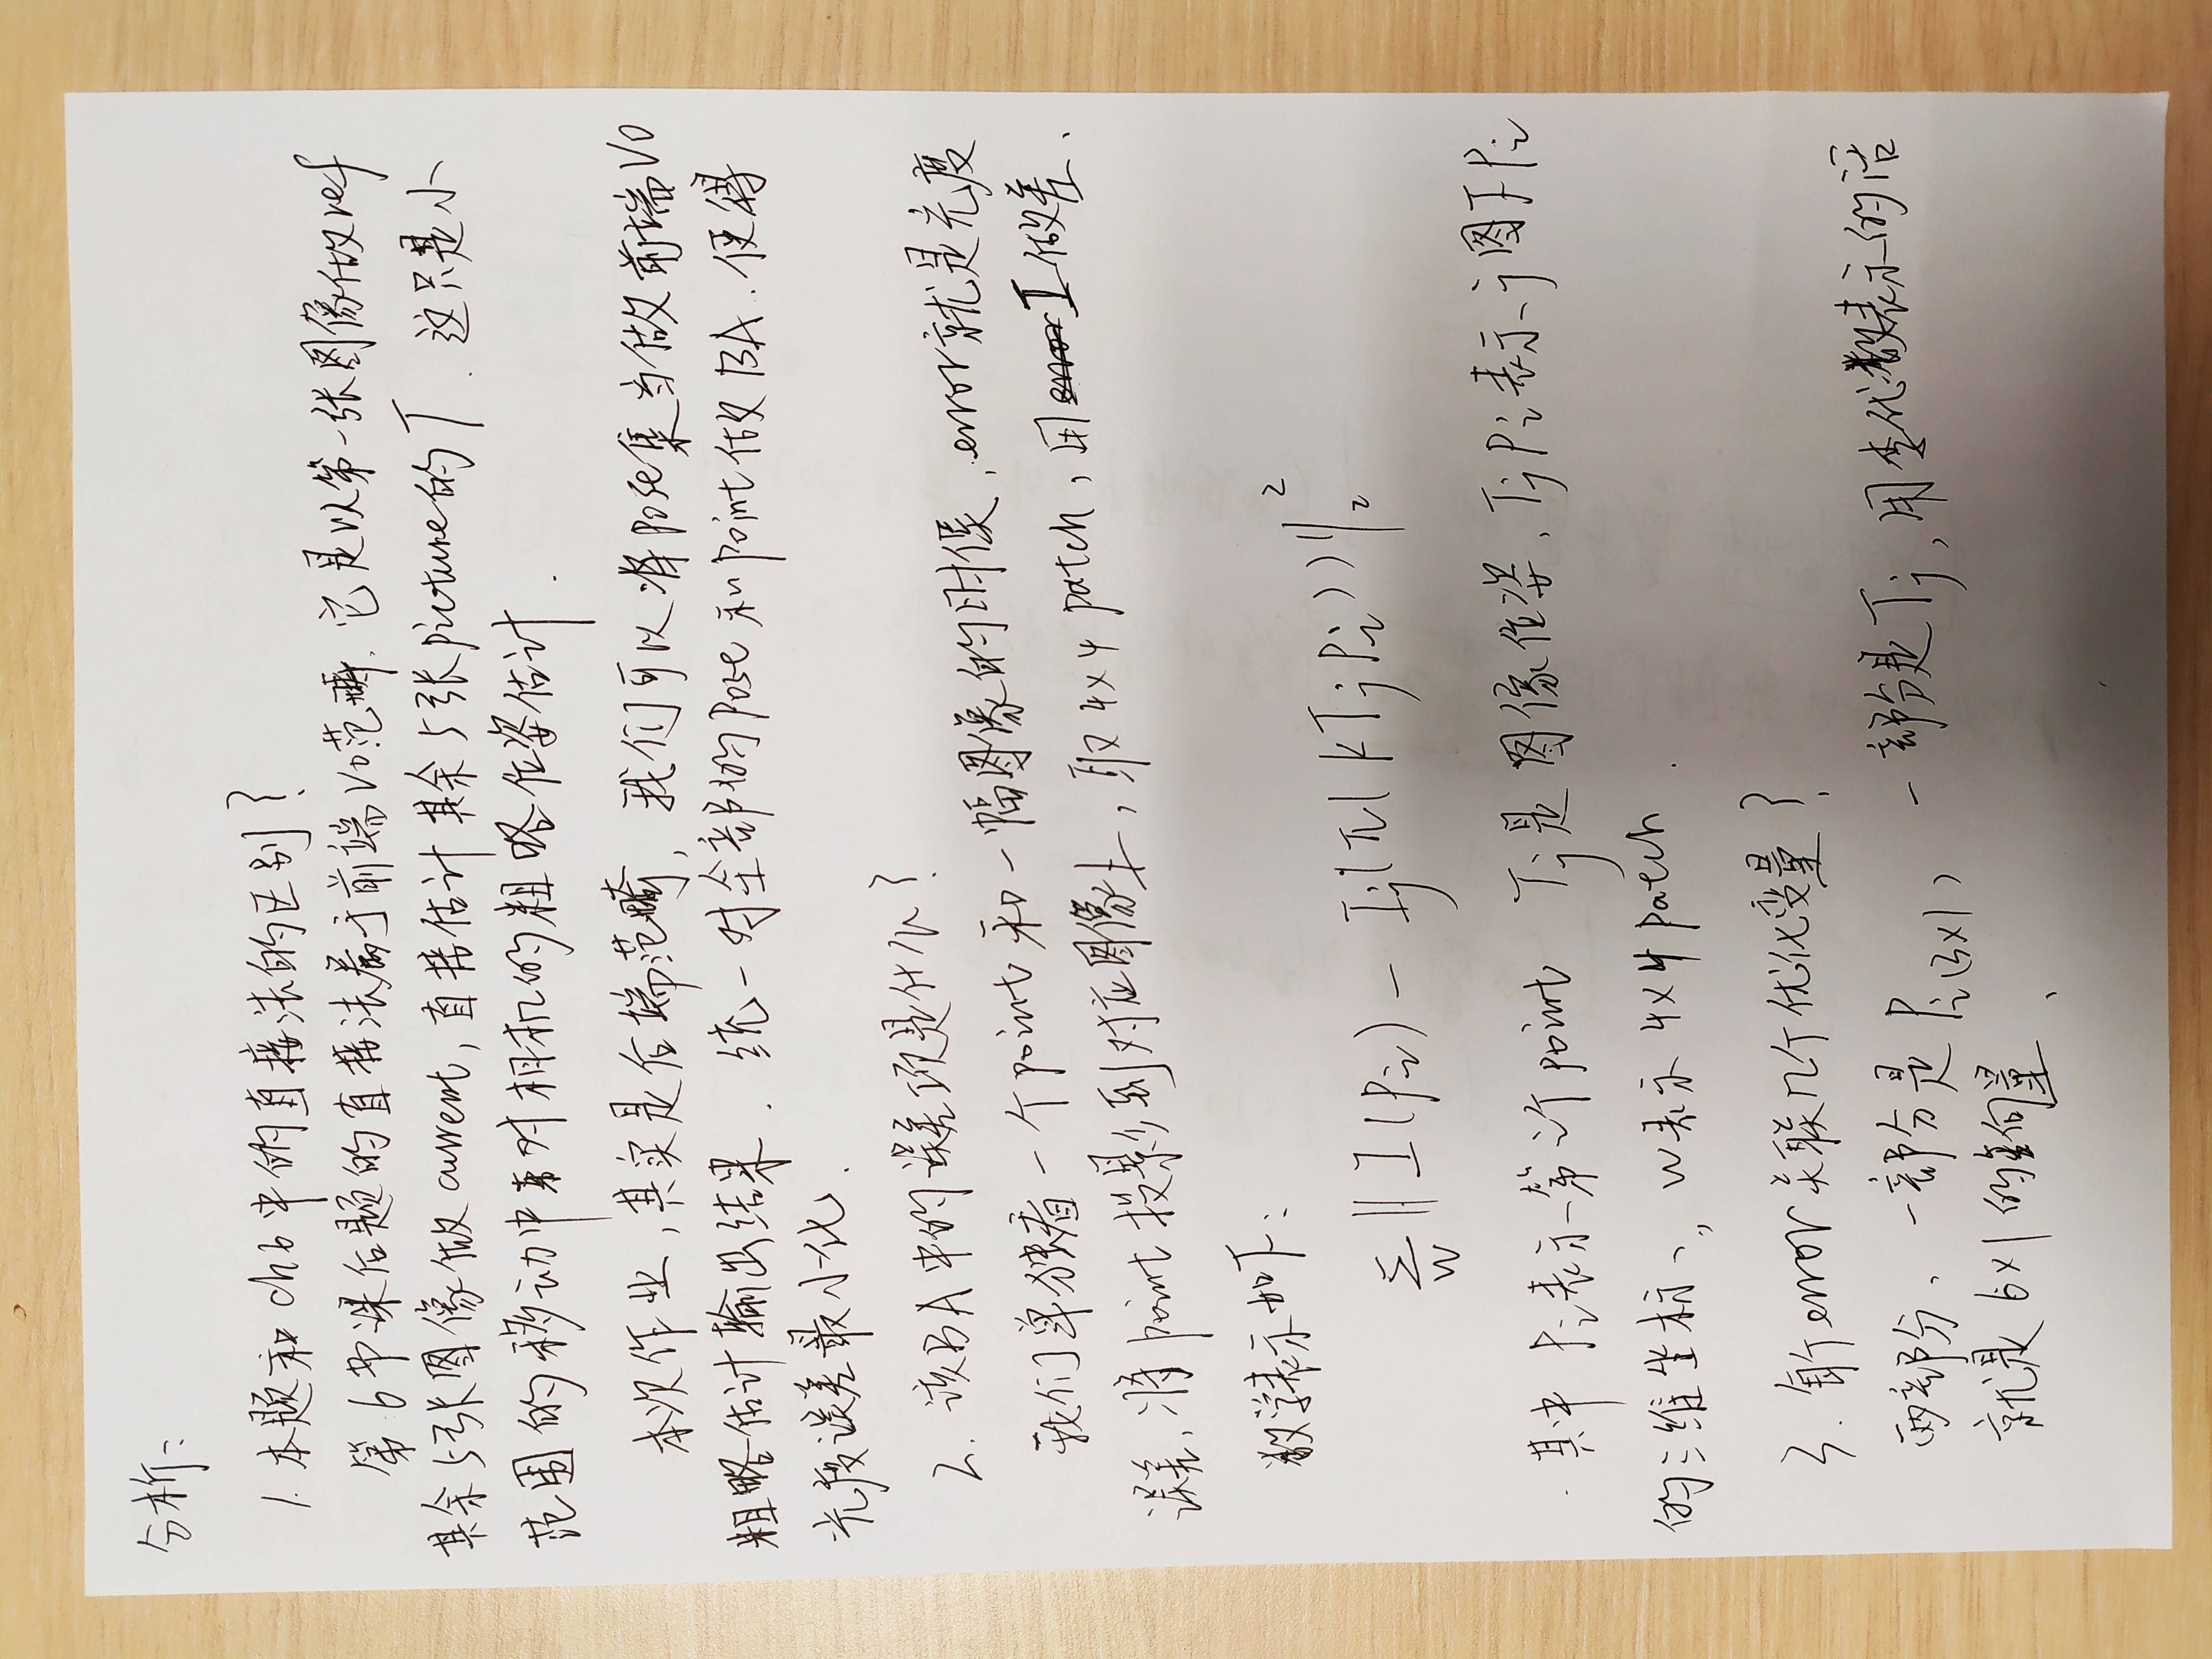 分析:
1. 本题和ch6中的直接法的区别?
第6节课后题的直接法属于前端VO范畴. 它是以第一张图像做ref
其余5张图像做current, 直接估计其余5张picture的T. 这只是小
范围的移动中对相机的粗略位姿估计.
本次作业, 其实是后端范畴, 我们可以将pose集当做前端VO
粗略估计输出结果. 统一对全部的pose和point做BA. 使得
光度误差最小化.
2. 该BA中的误差项是什么?
我们单独看一个point和一幅图像的时候, error就是光度
误差, 将point投影到对应图像上, 取4×4 patch, 用I做差.
数学表示如下:
∑_W ||I(P_i) - I_j(π(KT_jP_i))||_2^2
其中P_i表示第i个point T_j是图像位姿, T_jP_i表示j图下P_i
的三维坐标, W表示4×4 patch.
3. 每个error关联几个优化变量?
两部分, 一部分是P_i(3×1), 一部分是T_j, 用李代数表示的话
就是6×1的向量.